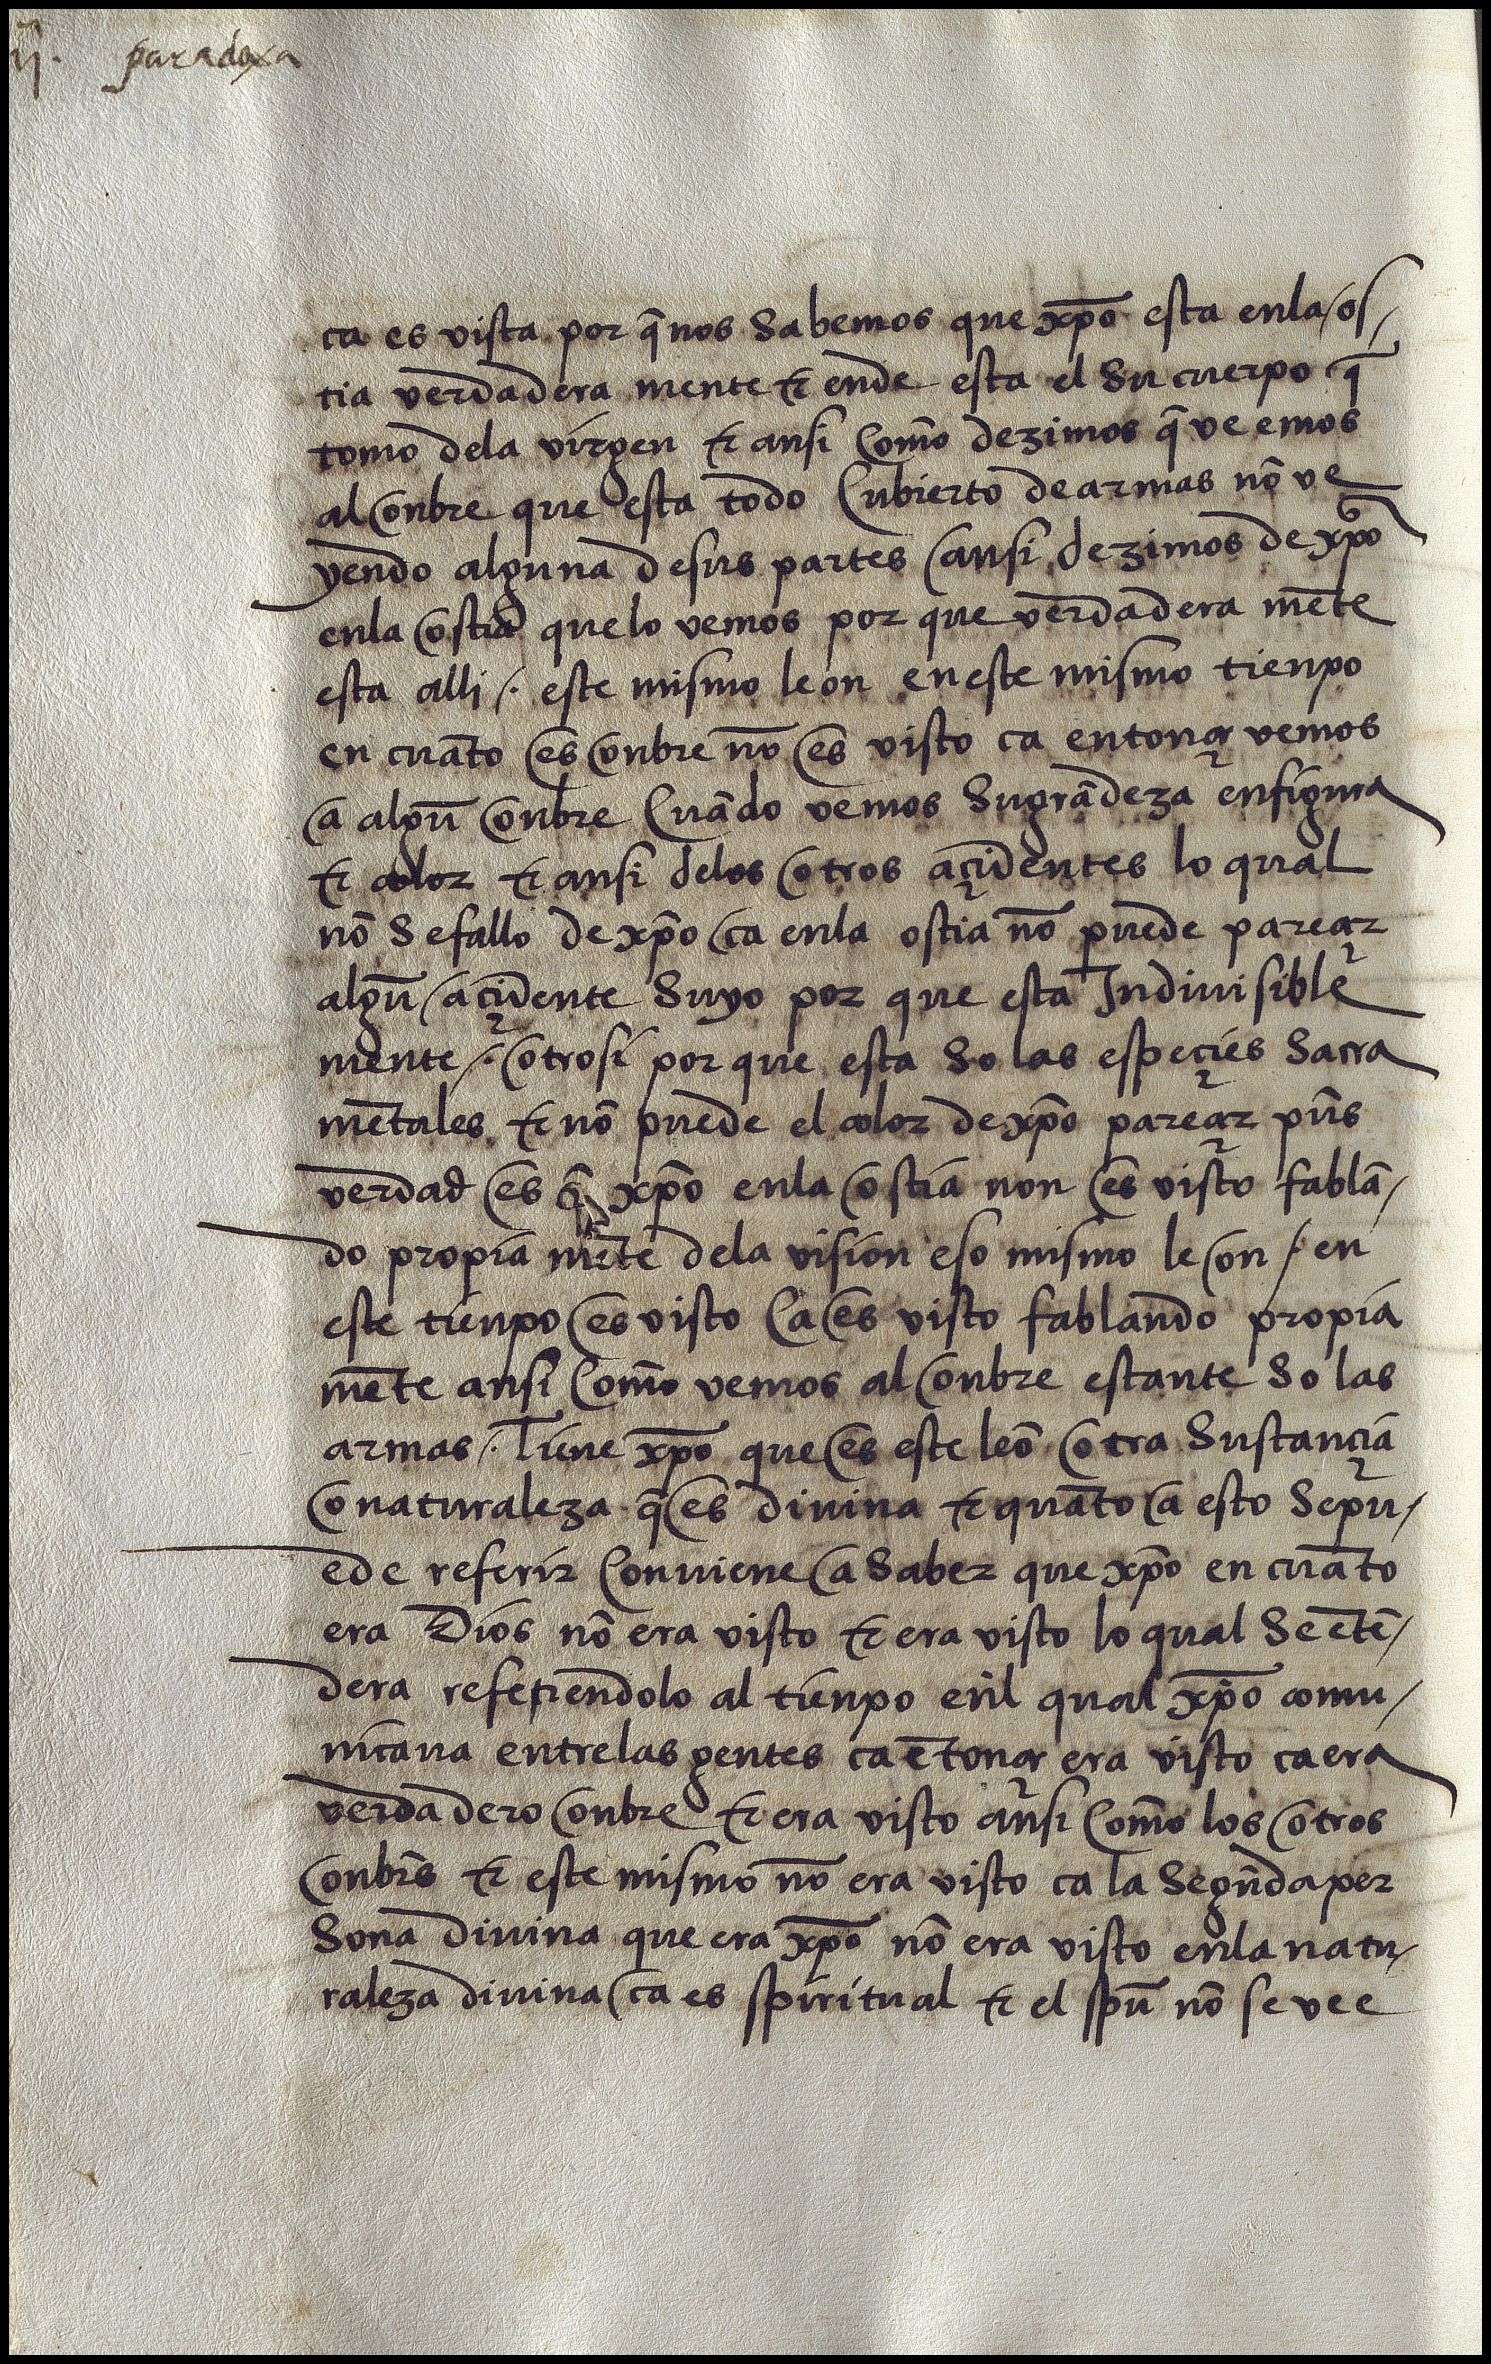 ij. paradoxa
ca es vista por q̃ nos sabemos que xp̃o esta enla / os /
tia verdadera mente & ende esta el su cuerpo q̃
tomo dela virgen & ansi com̃o dezimos q̃ veemos
al onbre que esta todo cubierto de armas nõ ve
yendo alguna desus partes ansi dezimos de xp̃o
enla ostia que lo vemos por que verdadera mẽte
esta alli /. este mismo leon en este mismo tienpo
en cuãto es onbre nõ es visto ca entonçe vemos
a algũ onbre cuãdo vemos su grãdeza en figura
& color & ansi delos otros açidentes lo qual
nõ se fallo de xp̃o ca enla ostia nõ puede pareçer
algũ açidente suyo por que esta Indiuisible
mente /. otrosi por que esta so las espeçies sacra
mẽtales & nõ puede el color de xp̃o pareçer pũs
verdad es q̃ xp̃o enla ostia non es visto fablã /
do propia mẽte dela vision eso mismo leon /. en
este tienpo es visto ca es visto fablando propia
mẽte ansi com̃o vemos al onbre estante so las
armas /. Tiene xp̃o que es este leõ otra sustançia
o naturaleza q̃ es diuina & quãto a esto se pu /
ede referir conuiene a saber que xp̃o en cuãto
era Dios nõ era visto & era visto lo qual se ẽtẽ /
dera refeⲣiendolo al tienpo enl qual xp̃o comu /
nicaua entre las gentes ca ẽtonçe era visto ca era
verdadero onbre & era visto ansi com̃o los otros
onbrs̃ & este mismo nõ era visto ca la segũda per
sona diuina que era xp̃o nõ era visto enla natu /
raleza diuina ca es spiritual & el spũ nõ se vee